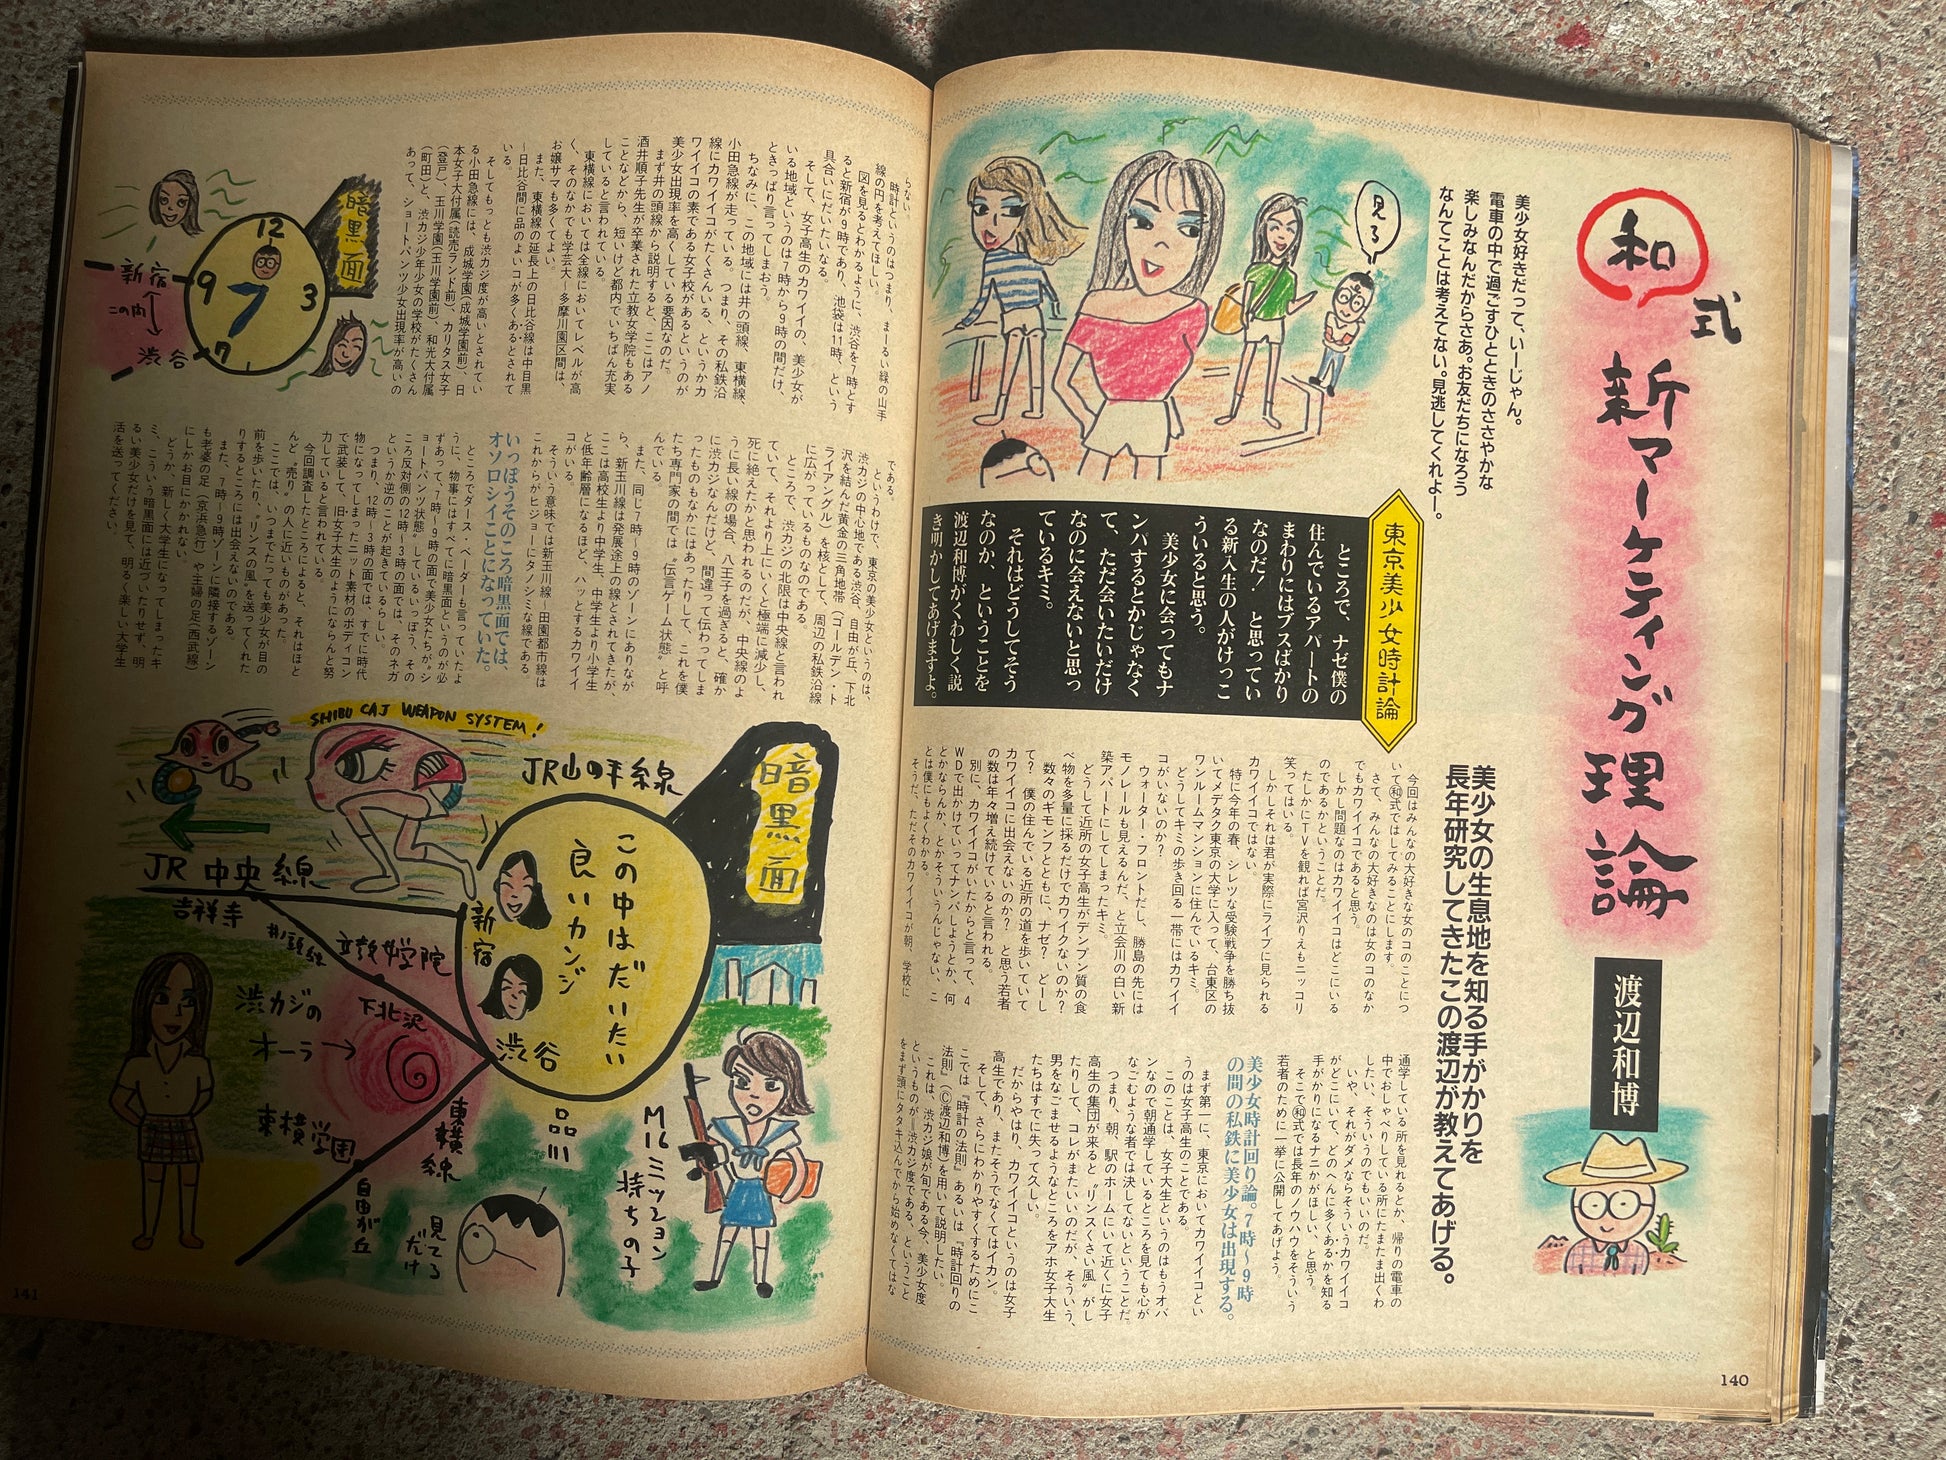 和式
新マーケティング理論
渡辺和博
美少女好きだって、いーじゃん。
電車の中で過ごすひとときのささやかな
楽しみなんだからさあ。お友だちになろう
なんてことは考えてない。見逃してくれよー。
見る
美少女の生息地を知る手がかりを
長年研究してきたこの渡辺が教えてあげる。
東京美少女時計論
ところで、ナゼ僕の
住んでいるアパートの
まわりにはブスばかり
なのだ! と思ってい
る新入生の人がけっこ
ういると思う。
美少女に会ってもナ
ンパするとかじゃなく
て、ただ会いたいだけ
なのに会えないと思っ
ているキミ。
それはどうしてそう
なのか、ということを
渡辺和博がくわしく説
き明かしてあげますよ。
今回はみんなの大好きな女のコのことにつ
いて和式ではしてみることにします。
さて、みんなの大好きなのは女のコのなか
でもカワイイコであると思う。
しかし問題なのはカワイイコはどこにいる
のであるかということだ。
たしかにTVを観れば宮沢りえもニッコリ
笑ってはいる。
しかしそれは君が実際にライブに見られる
カワイイコではない。
特に今年の春、シレツな受験戦争を勝ち抜
いてメデタク東京の大学に入って、台東区の
ワンルームマンションに住んでいるキミ。
どうしてキミの歩き回る一帯にはカワイイ
コがいないのか?
ウォーター・フロントだし、勝島の先には
モノレールも見えるんだ、と立会川の白い新
築アパートにしてしまったキミ。
どうして近所の女子高生がデンプン質の食
べ物を多量に採るだけでカワイクないのか?
数々のギモンフとともに、ナゼ? どーし
て? 僕の住んでいる近所の道を歩いていて
カワイイコに出会えないのか? と思う若者
の数は年々増え続けていると言われる。
別に、カワイイコがいたからと言って、4
WDで出かけていってナンパしようとか、何
とかならんか、とかそういうんじゃない、こ
とは僕にもよくわかる。
そうだ、ただそのカワイイコが朝、学校に
通学している所を見れるとか、帰りの電車の
中でおしゃべりしている所にたまたま出くわ
したい、そういうのでもいいのだ。
いや、それがダメならそういうカワイイコ
がどこにいて、どのへんに多くあるかを知る
手がかりになるナニかがほしい、と思う。
そこで和式では長年のノウハウをそういう
若者のために一挙に公開してあげよう。
美少女時計回り論。7時〜9時
の間の私鉄に美少女は出現する。
まず第一に、東京においてカワイイコとい
うのは女子高生のことである。
このことは、女子大生というのはもうオバ
ンなので朝通学しているところを見ても心が
なごむような者では決してないということだ。
つまり、朝、駅のホームにいて近くに女子
高生の集団が来ると〝リンスくさい風〟がし
たりして、コレがまたいいのだが、そういう、
男をなごませるようなところをアホ女子大生
たちはすでに失って久しい。
だからやはり、カワイイコというのは女子
高生であり、またそうでなくてはイカン。
そして、さらにわかりやすくするためにこ
こでは『時計の法則』あるいは『時計回りの
法則』(©渡辺和博)を用いて説明したい。
これは、渋カジ娘が旬である今、美少女度
というものが=渋カジ度である、ということ
をまず頭にタタキ込んでから始めなくてはな
140
らない。
時計というのはつまり、まーるい緑の山手
線の円を考えてほしい。
図を見るとわかるように、渋谷を7時とす
ると新宿が9時であり、池袋は11時、という
具合いにだいたいなる。
そして、女子高生のカワイイの、美少女が
いる地域というのは7時から9時の間だけ、
ときっぱり言ってしまおう。
ちなみに、この地域には井の頭線、東横線、
小田急線が走っている。つまり、その私鉄沿
線にカワイイコがたくさんいる、というかカ
ワイイコの素である女子校があるというのが
美少女出現率を高くしている要因なのだ。
まず井の頭線から説明すると、ここはアノ
酒井順子先生が卒業された立教女学院もある
ことなどから、短いけど都内でいちばん充実
していると言われている。
東横線においては全線においてレベルが高
く、そのなかでも学芸大〜多摩川園区間は、
お嬢サマも多くてよい。
また、東横線の延長上の日比谷線は中目黒
〜日比谷間に品のよいコが多くあるとされて
いる。
そしてもっとも渋カジ度が高いとされてい
る小田急線には、成城学園(成城学園前)、日
本女子大付属(読売ランド前)、カリタス女子
(登戸)、玉川学園(玉川学園前)、和光大付属
(町田)と、渋カジ少年少女の学校がたくさん
あって、ショートパンツ少女出現率が高いの
暗黒面
12
3
9
7
新宿
この内
渋谷
である。
というわけで、東京の美少女というのは、
渋カジの中心地である渋谷、自由が丘、下北
沢を結んだ黄金の三角地帯(ゴールデン・ト
ライアングル)を核として、周辺の私鉄沿線
に広がっているものなのである。
ところで、渋カジの北限は中央線と言われ
ていて、それより上にいくと極端に減少し、
死に絶えたかと思われるのだが、中央線のよ
うに長い線の場合、八王子を過ぎると、確か
に渋カジなんだけど、間違って伝わってしま
ったものもなかにはあったりして、これを僕
たち専門家の間では〝伝言ゲーム状態〟と呼
んでいる。
また、同じ7時〜9時のゾーンにありなが
ら、新玉川線は発展途上の線とされてきたが、
ここは高校生より中学生、中学生より小学生
と低年齢層になるほど、ハッとするカワイイ
コがいる。
そういう意味では新玉川線〜田園都市線は
これからがヒジョーにタノシミな線である。
いっぽうそのころ暗黒面では、
オソロシイことになっていた。
ところでダース・ベーダーも言っていたよ
うに、物事にはすべてに暗黒面というのが必
ずあって、7時〜9時の面で美少女たちがシ
ョートパンツ状態〟しているいっぽう、その
ころ反対側の12時〜3時の面では、そのネガ
というか逆のことが起きているらしい。
つまり、12時〜3時の面では、すでに時代
物になってしまったニット素材のボディコン
で武装して、旧女子大生のようにならんと努
力していると言われている。
今回調査したところによると、それはほと
んど〝売り〟の人に近いものがあった。
ここでは、いつまでたっても美少女が目の
前を歩いたり、〝リンスの風〟を送ってくれた
りするところには出会えないのである。
また、7時〜9時ゾーンに隣接するゾーン
も老婆の足(京浜急行)や主婦の足(西武線)
にしかお目にかかれない。
どうか、新しく大学生になってしまったキ
ミ、こういう暗黒面には近づいたりせず、明
るい美少女だけを見て、明るく楽しい大学生
活を送ってください。
SHIBU CAJ WEAPON SYSTEM!
JR山の手線
暗黒面
この中はだいたい
良いカンジ
JR中央線
吉祥寺
新宿
井の頭線
立教女学院
渋カジの
オーラ→
下北沢
渋谷
東横学園
東横線
自由が丘
品川
見てる
だけ
M16ミッション
持ちの子
141